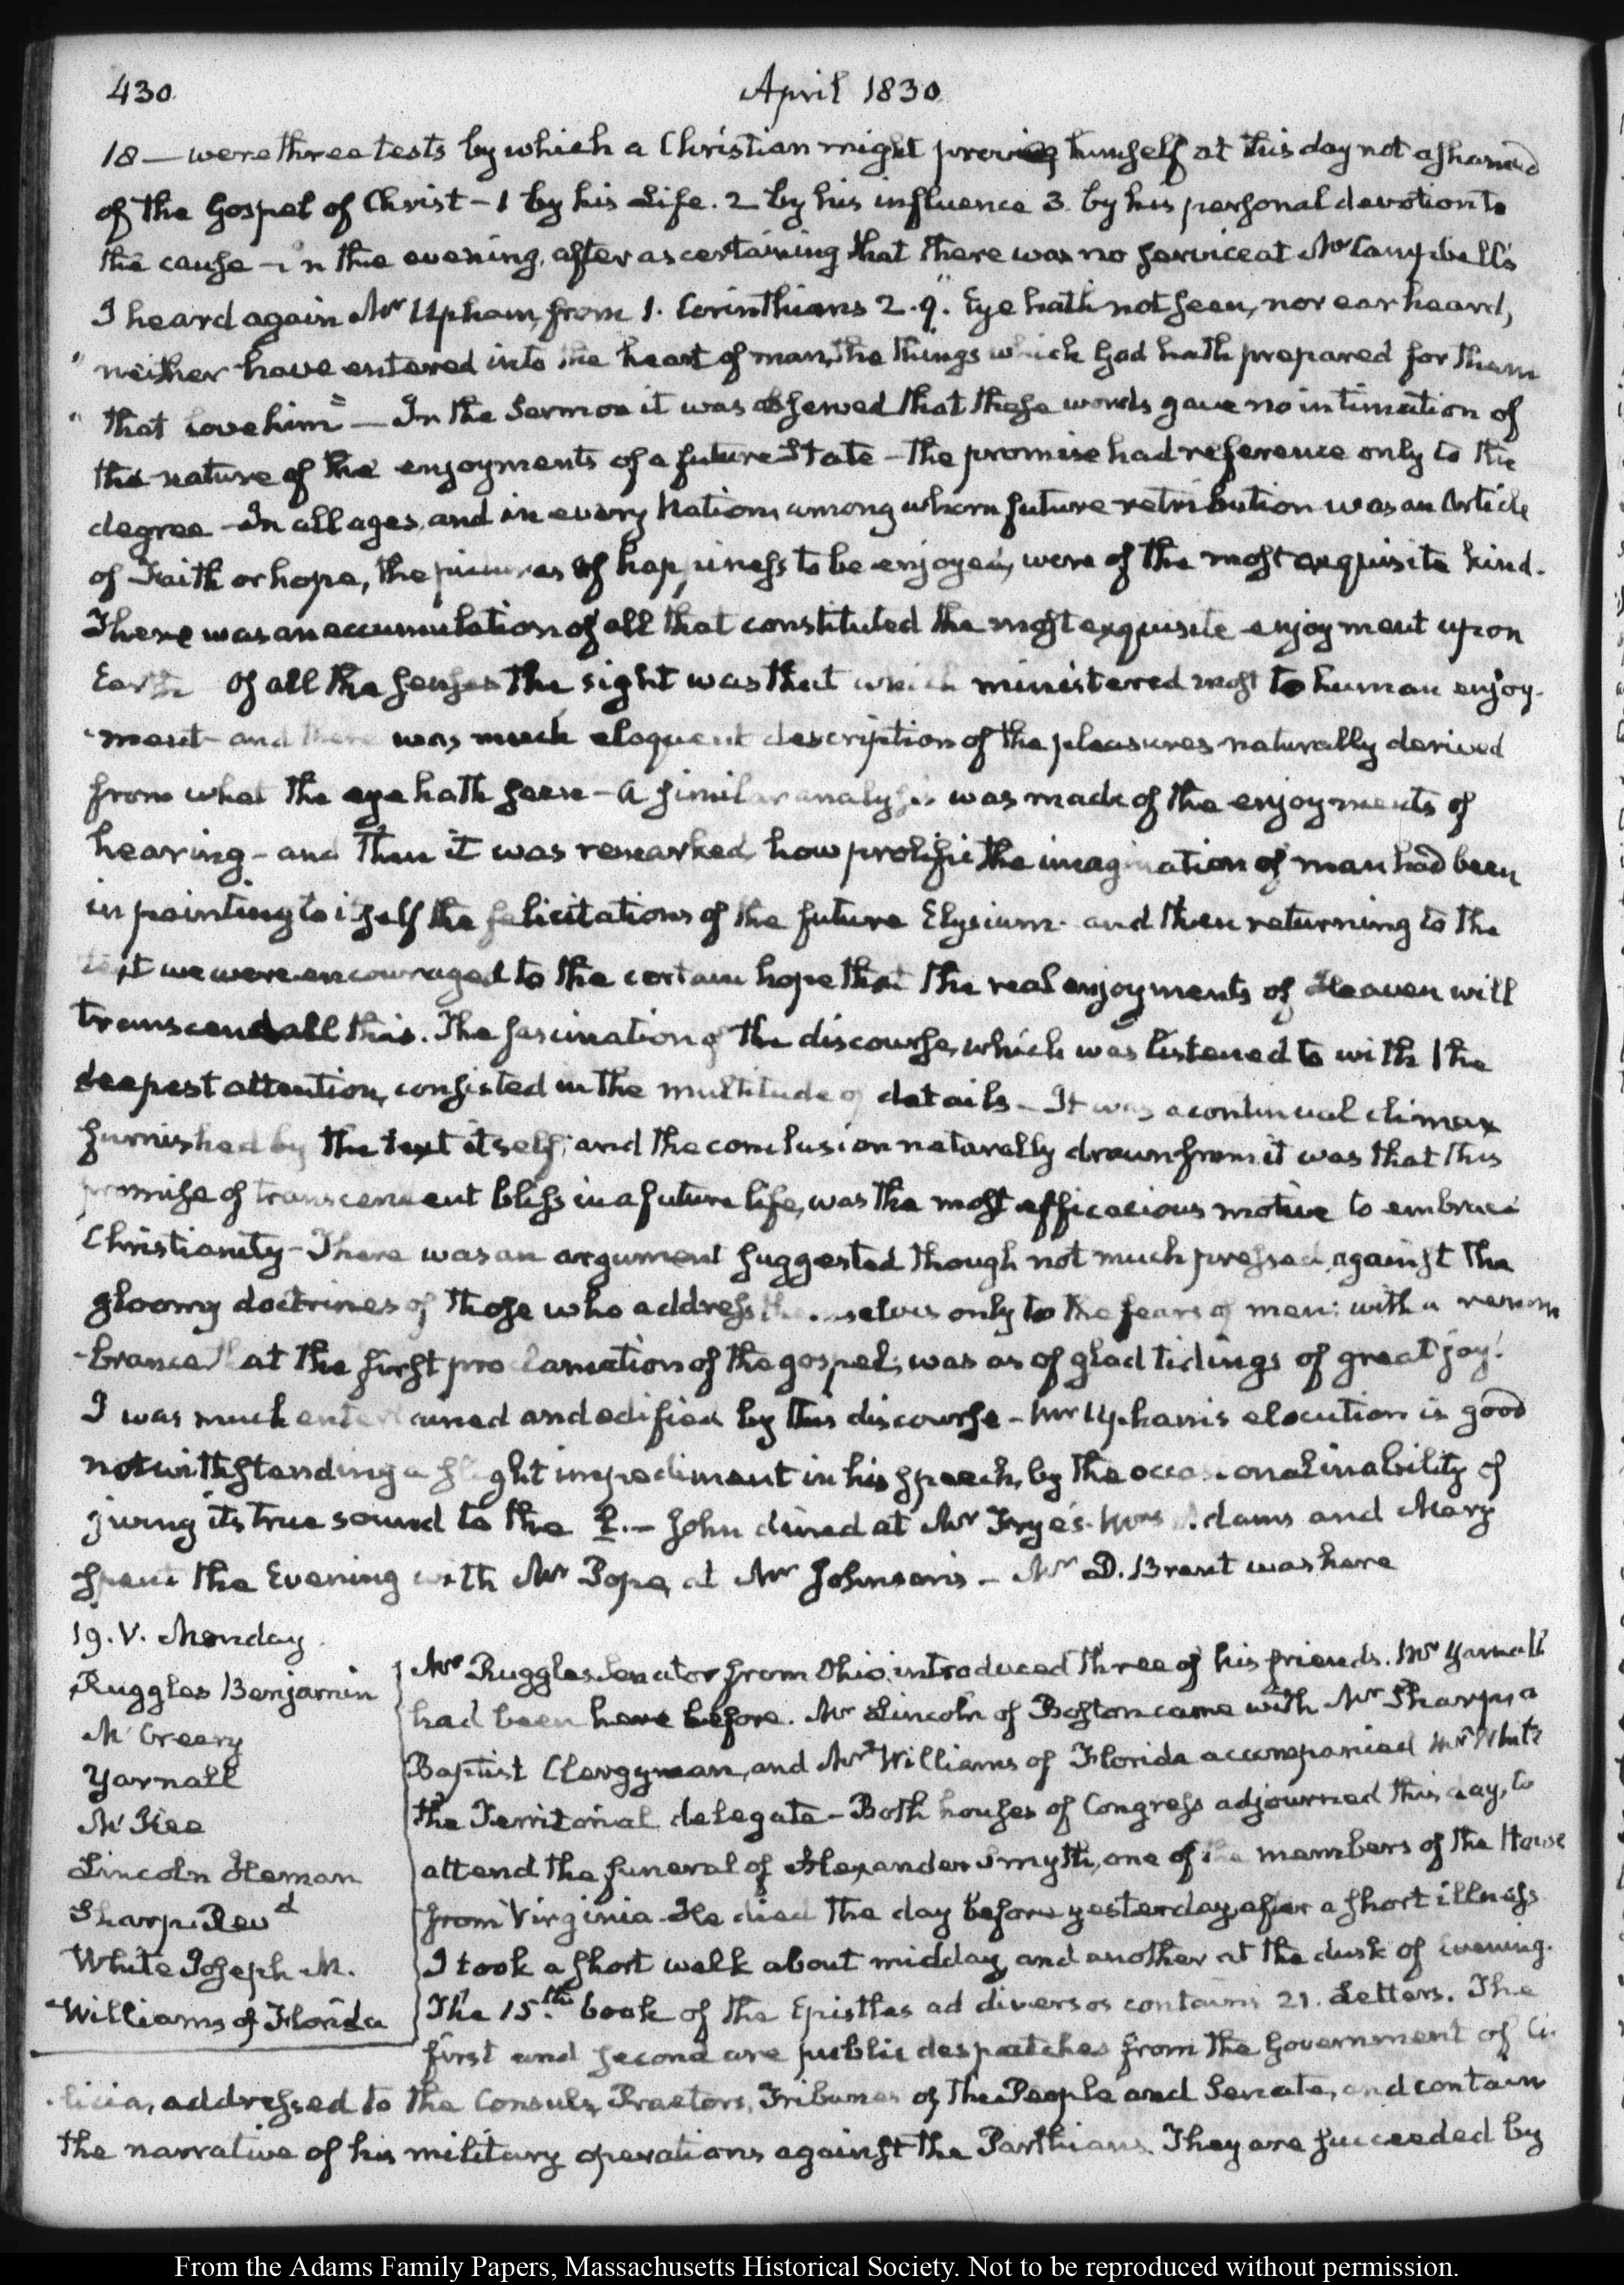 430
April 1830
18 — were three tests by which a Christian might proving himself at this day not ashamed
of the Gospel of Christ – 1 by his Life. 2 by his influence 3. by his personal devotion to
the cause – in the evening, after ascertaining that there was no service at Mr Campbell's
I heard again Mr Upham, from 1. Corinthians 2.9. "Eye hath not seen, nor ear heard,
" neither have entered into the heart of man, the things which God hath prepared for them
" that love him" — In the Sermon it was observed that these words gave no intimation of
the nature of the enjoyments of a future State – the promise had reference only to the
degree – In all ages, and in every Nation, among whom future retribution was an Article
of Faith or hope, the pictures of happiness to be enjoyed, were of the most exquisite kind.
There was an accumulation of all that constituted the most exquisite enjoyment upon
Earth Of all the senses the sight was that which ministered most to human enjoy-
-ment – and there was much eloquent description of the pleasures naturally derived
from what the eye hath seen – a similar analysis was made of the enjoyments of
hearing – and then it was remarked, how prolific the imagination of man had been
in painting to itself the felicitations of the future Elysium – and then returning to the
text we were encouraged to the certain hope that the real enjoyments of Heaven will
transcend all this. The fascination of the discourse, which was listened to with the
deepest attention, consisted in the multitude of details – It was a continual climax
furnished by the text itself; and the conclusion naturally drawn from it was that this
promise of transcendent bliss in a future life, was the most efficacious motive to embrace
Christianity – There was an argument suggested though not much pressed, against the
gloomy doctrines of those who address themselves only to the fears of men: with a remem
-brance that the first proclamation of the gospel, was as of glad tidings of great joy.
I was much entertained and edified by this discourse – Mr Upham's elocution is good
notwithstanding a slight impediment in his speech, by the occasional inability of
giving its true sound to the r. – John dined at Mr Frye's. Mrs Adams and Mary
spent the Evening with Mrs Pope, at Mr Johnson's. – Mr D. Brent was here
19. V. Monday.
Ruggles Benjamin
McCreery
Yarnall
McKee
Lincoln Heman
Sharp. Revd
White Joseph M.
–Williams of Florida
Mr Ruggles Senator from Ohio, introduced three of his friends. Mr Yarnall
had been here before. Mr Lincoln of Boston came with Mr Sharp, a
Baptist Clergyman, and Mr Williams of Florida accompanied Mr White
the Territorial delegate – Both houses of Congress adjourned this day, to
attend the funeral of Alexander Smyth, one of the members of the House
from Virginia. He died the day before yesterday, after a short illness.
I took a short walk about midday, and another at the dusk of Evening.
The 15th book of the Epistles ad diversos contains 21. Letters. The
first and second are public despatches from the Government of Ci-
-licia, addressed to the Consuls, Praetors, Tribunes of the People and Senate, and contain
the narrative of his military operations against the Parthians. They are succeeded by
From the Adams Family Papers, Massachusetts Historical Society. Not to be reproduced without permission.